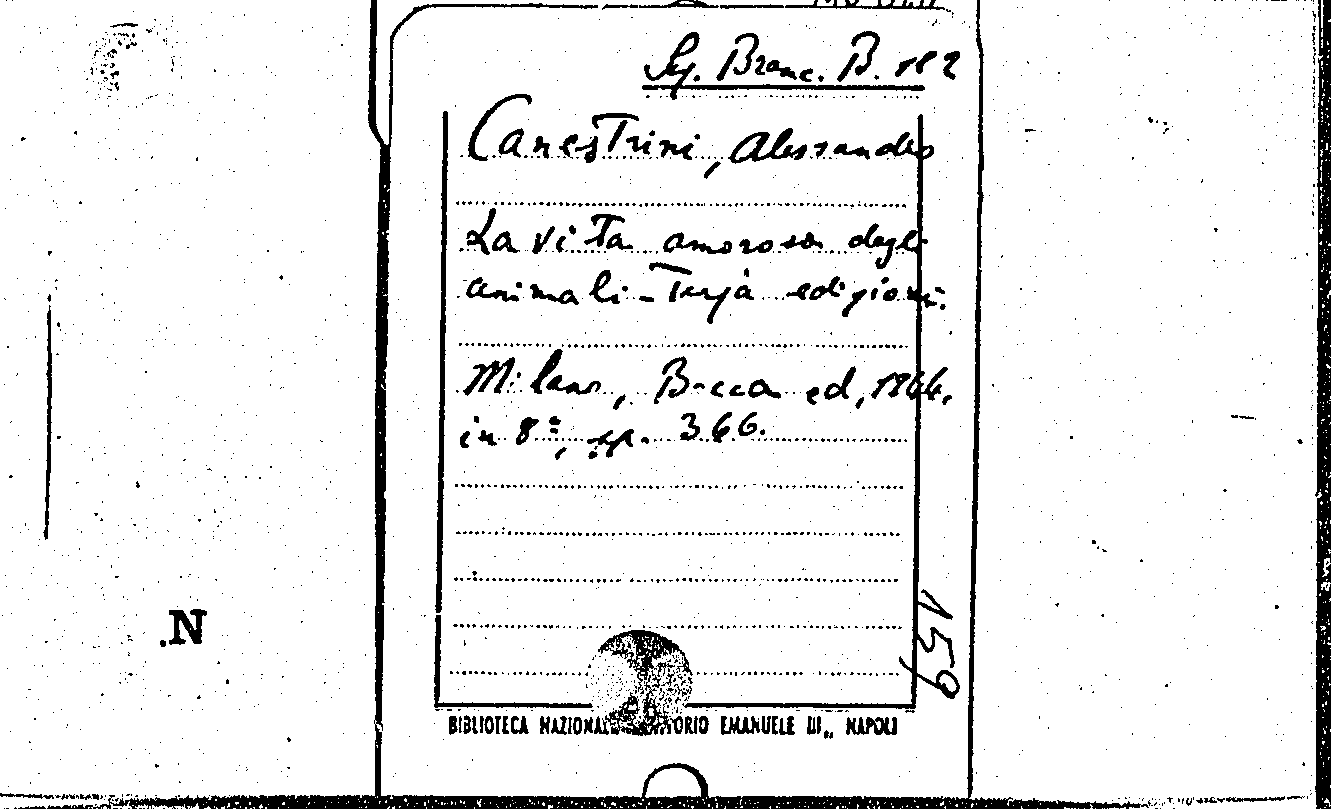 Branc. B. 182
Canestrini, Alessandro
La vita amorosa degli
animali - Terza edizione.
Milano, Bocca ed,
in 8º, pp. 366.
159
.N
BIBLIOTECA NAZIONALE VITTORIO EMANUELE III„ NAPOLI